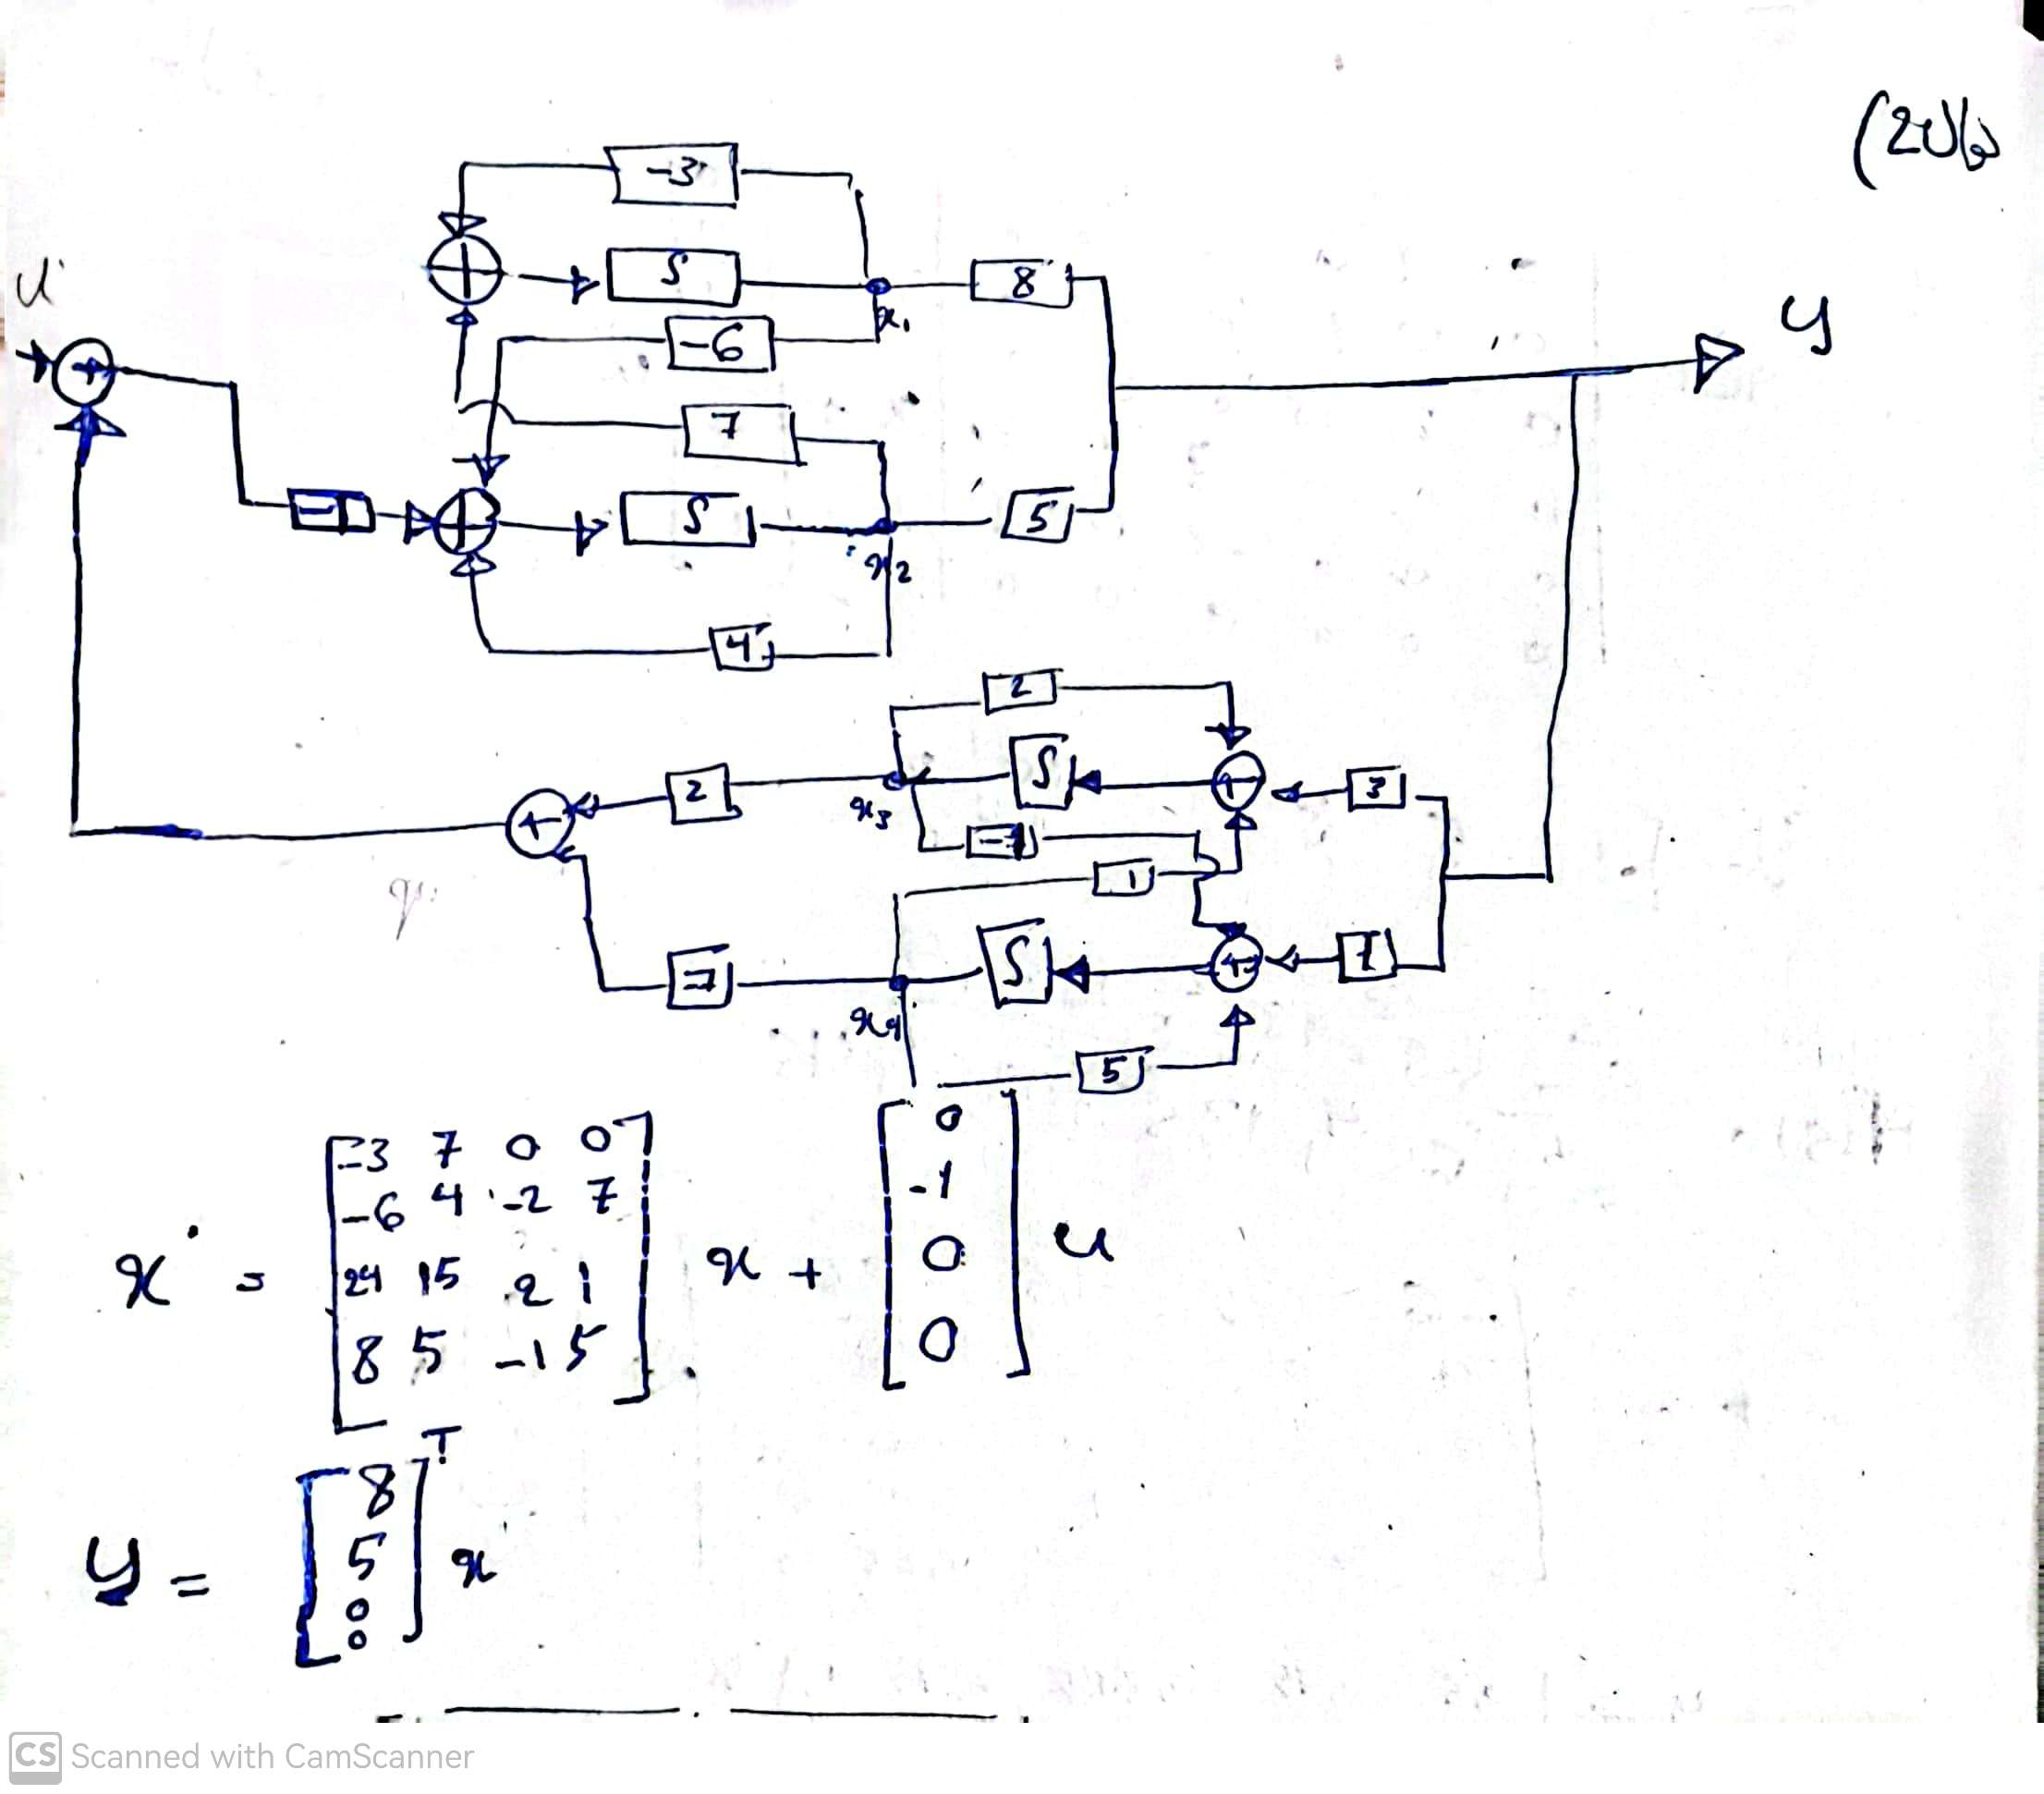 -3
u
∫
8
x1
-6
y
7
-1
∫
5
x2
4
2
∫
3
2
x3
-1
1
∫
1
-7
x4
5
ẋ = [-3 7 0 0; -6 4 -2 7; 24 15 2 1; 8 5 -1 5] x + [0; -1; 0; 0] u
y = [8; 5; 0; 0]ᵀ x
CS Scanned with CamScanner